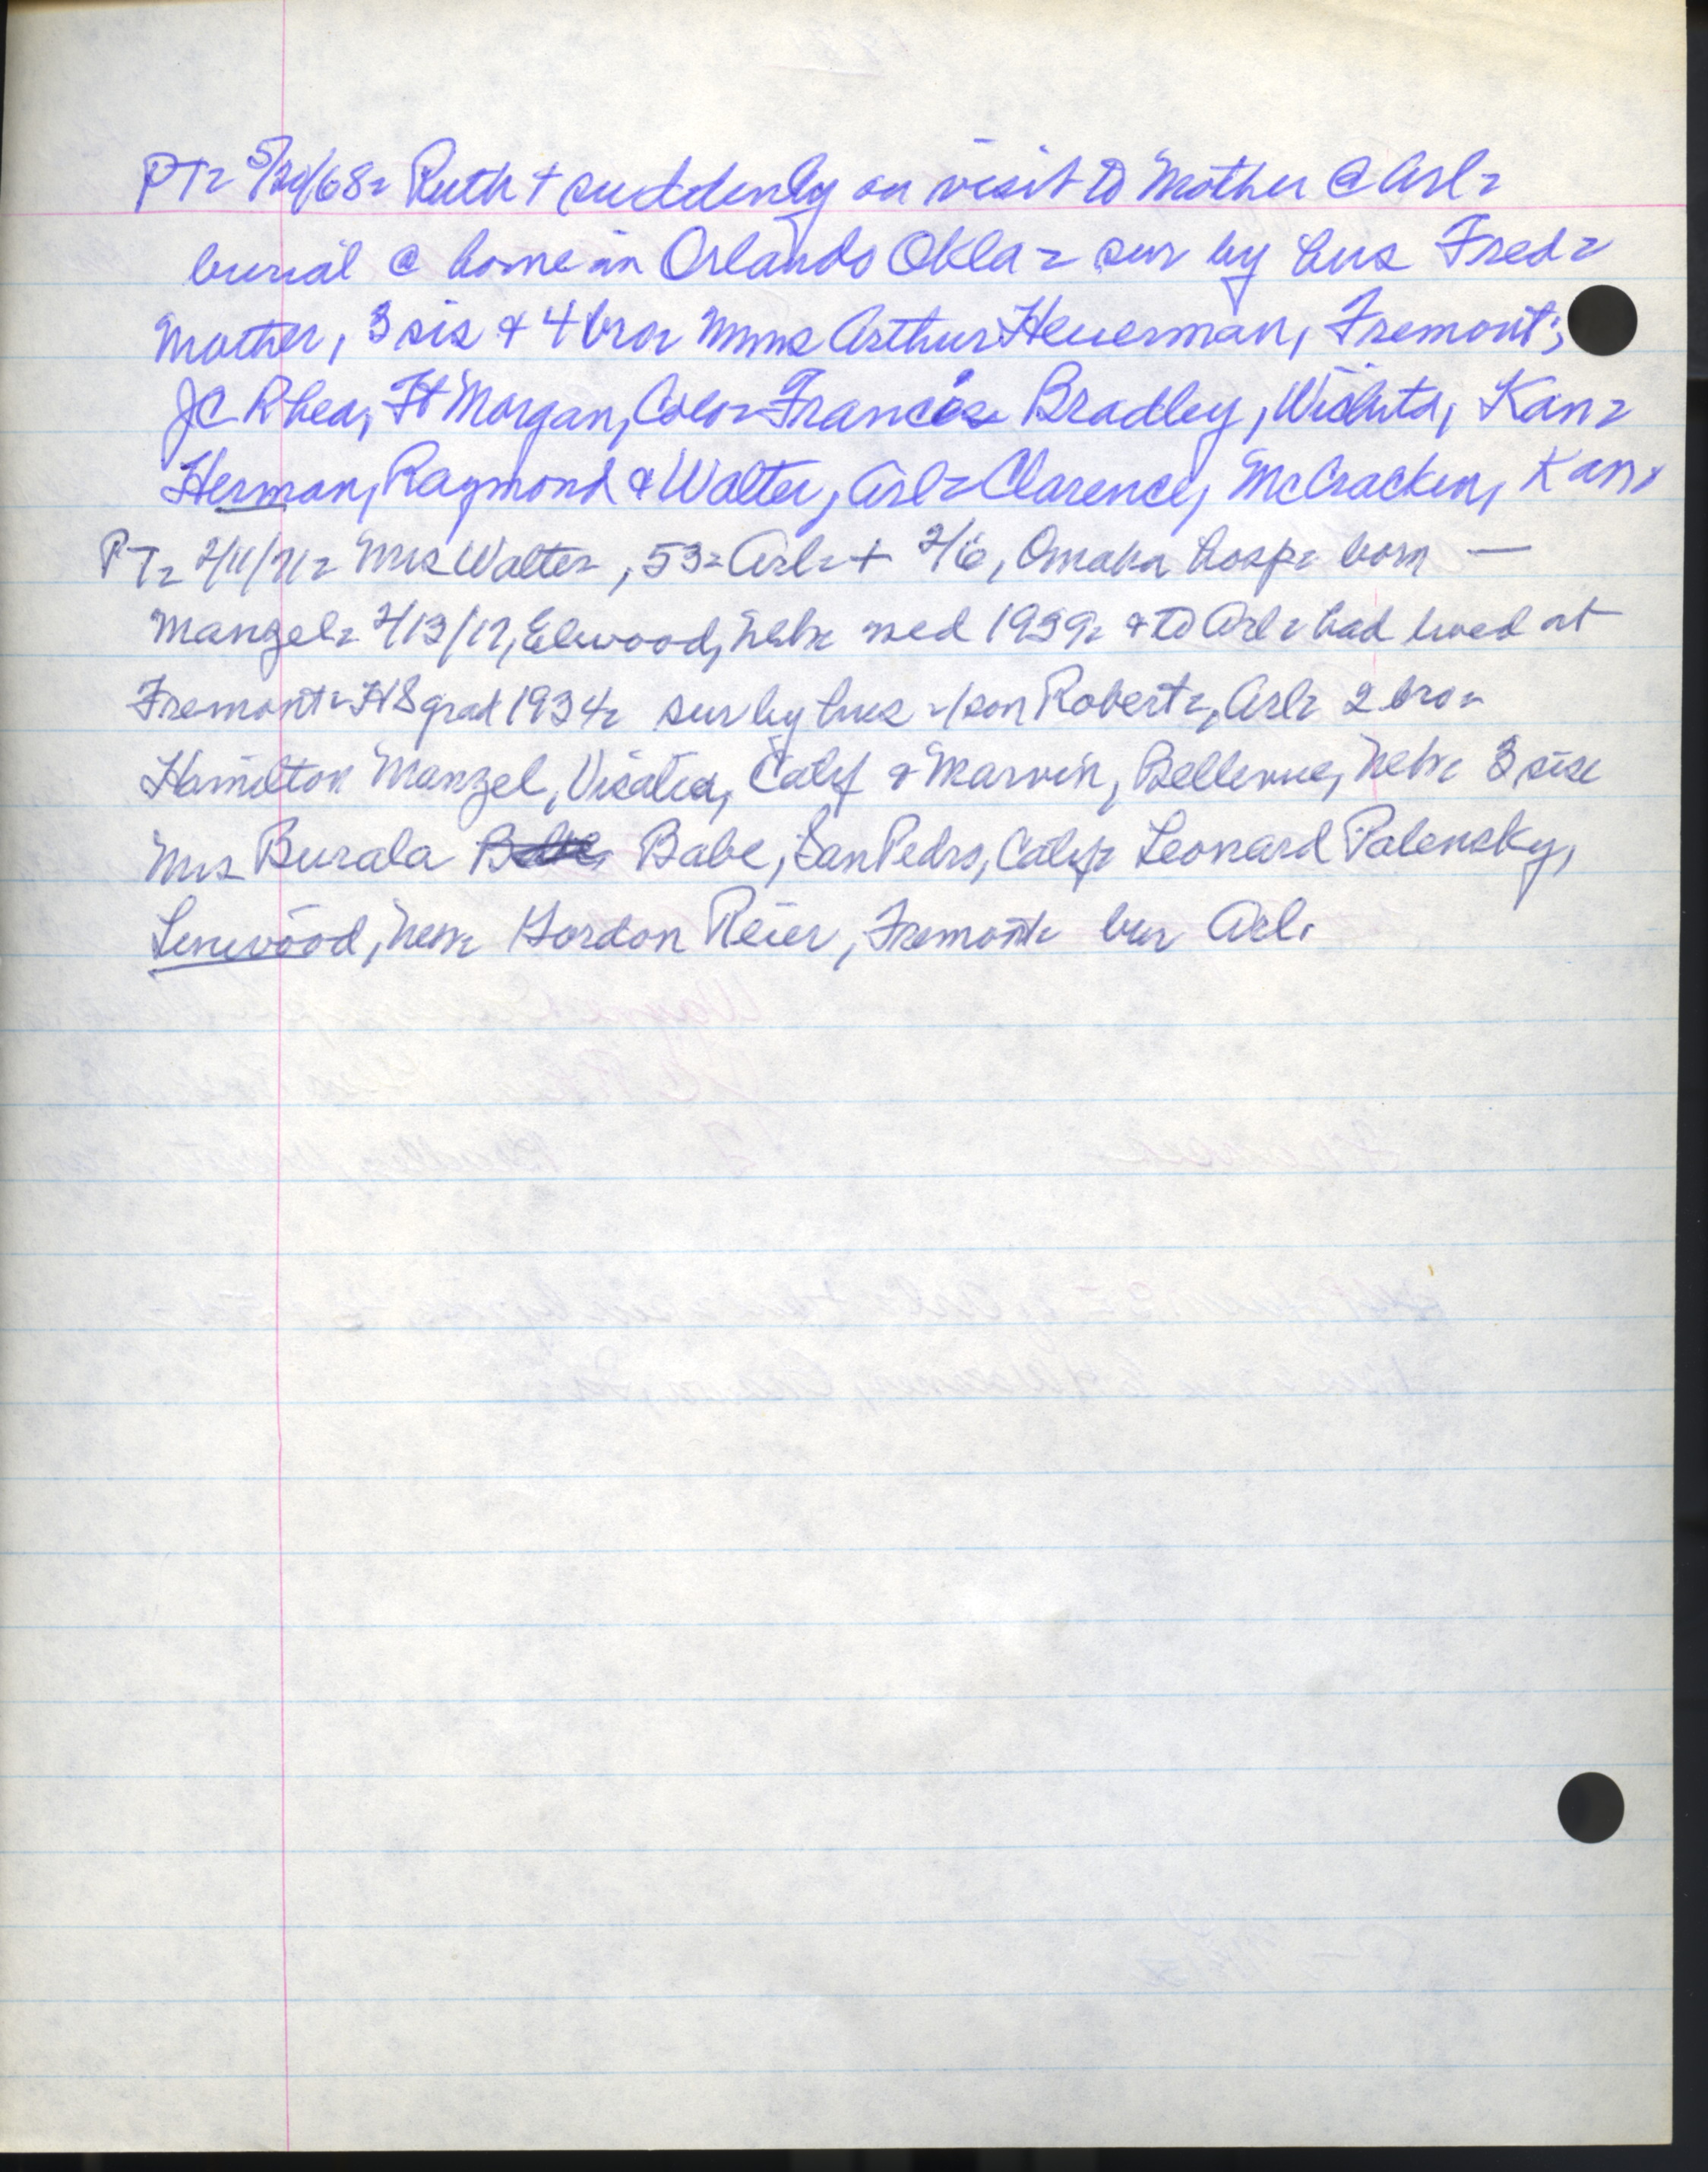 PT= 5/20/68= Ruth + suddenly on visit to Mother @ Arl=
burial @ home in Orlando Okla = sur by hus Fred=
Mother, 3 sis & 4 bro= Mmes Arthur Heuerman, Fremont;
JC Rhea, Ft Morgan, Colo= Francis Bradley, Wichita, Kan=
Herman, Raymond & Walter, Arl= Clarence, McCracken, Kan.
PT= 2/11/71= Mrs Walter, 53= Arl= + 2/6, Omaha hosp= born —
Manzel= 2/13/17, Elwood, Nebr med 1939= & to Arl= had lived at
Fremont= HS grad 1934= sur by hus - 1 son Robert=, Arl= 2 bro=
Hamilton Manzel, Visalia, Calif & Marvin, Bellevue, Nebr 3 sis=
Mrs Burala Babe, San Pedro, Calif= Leonard Palensky,
Linwood, Nebr Gordon Reier, Fremont= bur Arl.